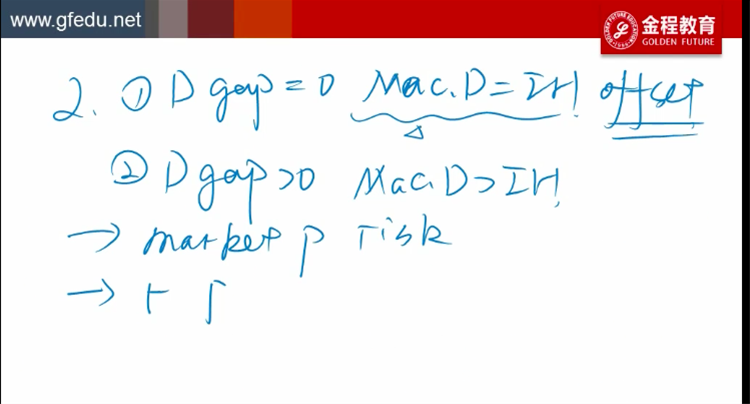 www.gfedu.net
金程教育
GOLDEN FUTURE
2. ① D gap = 0 Mac.D = IH! offset
② D gap > 0 Mac.D > IH!
→ market p risk
→ r